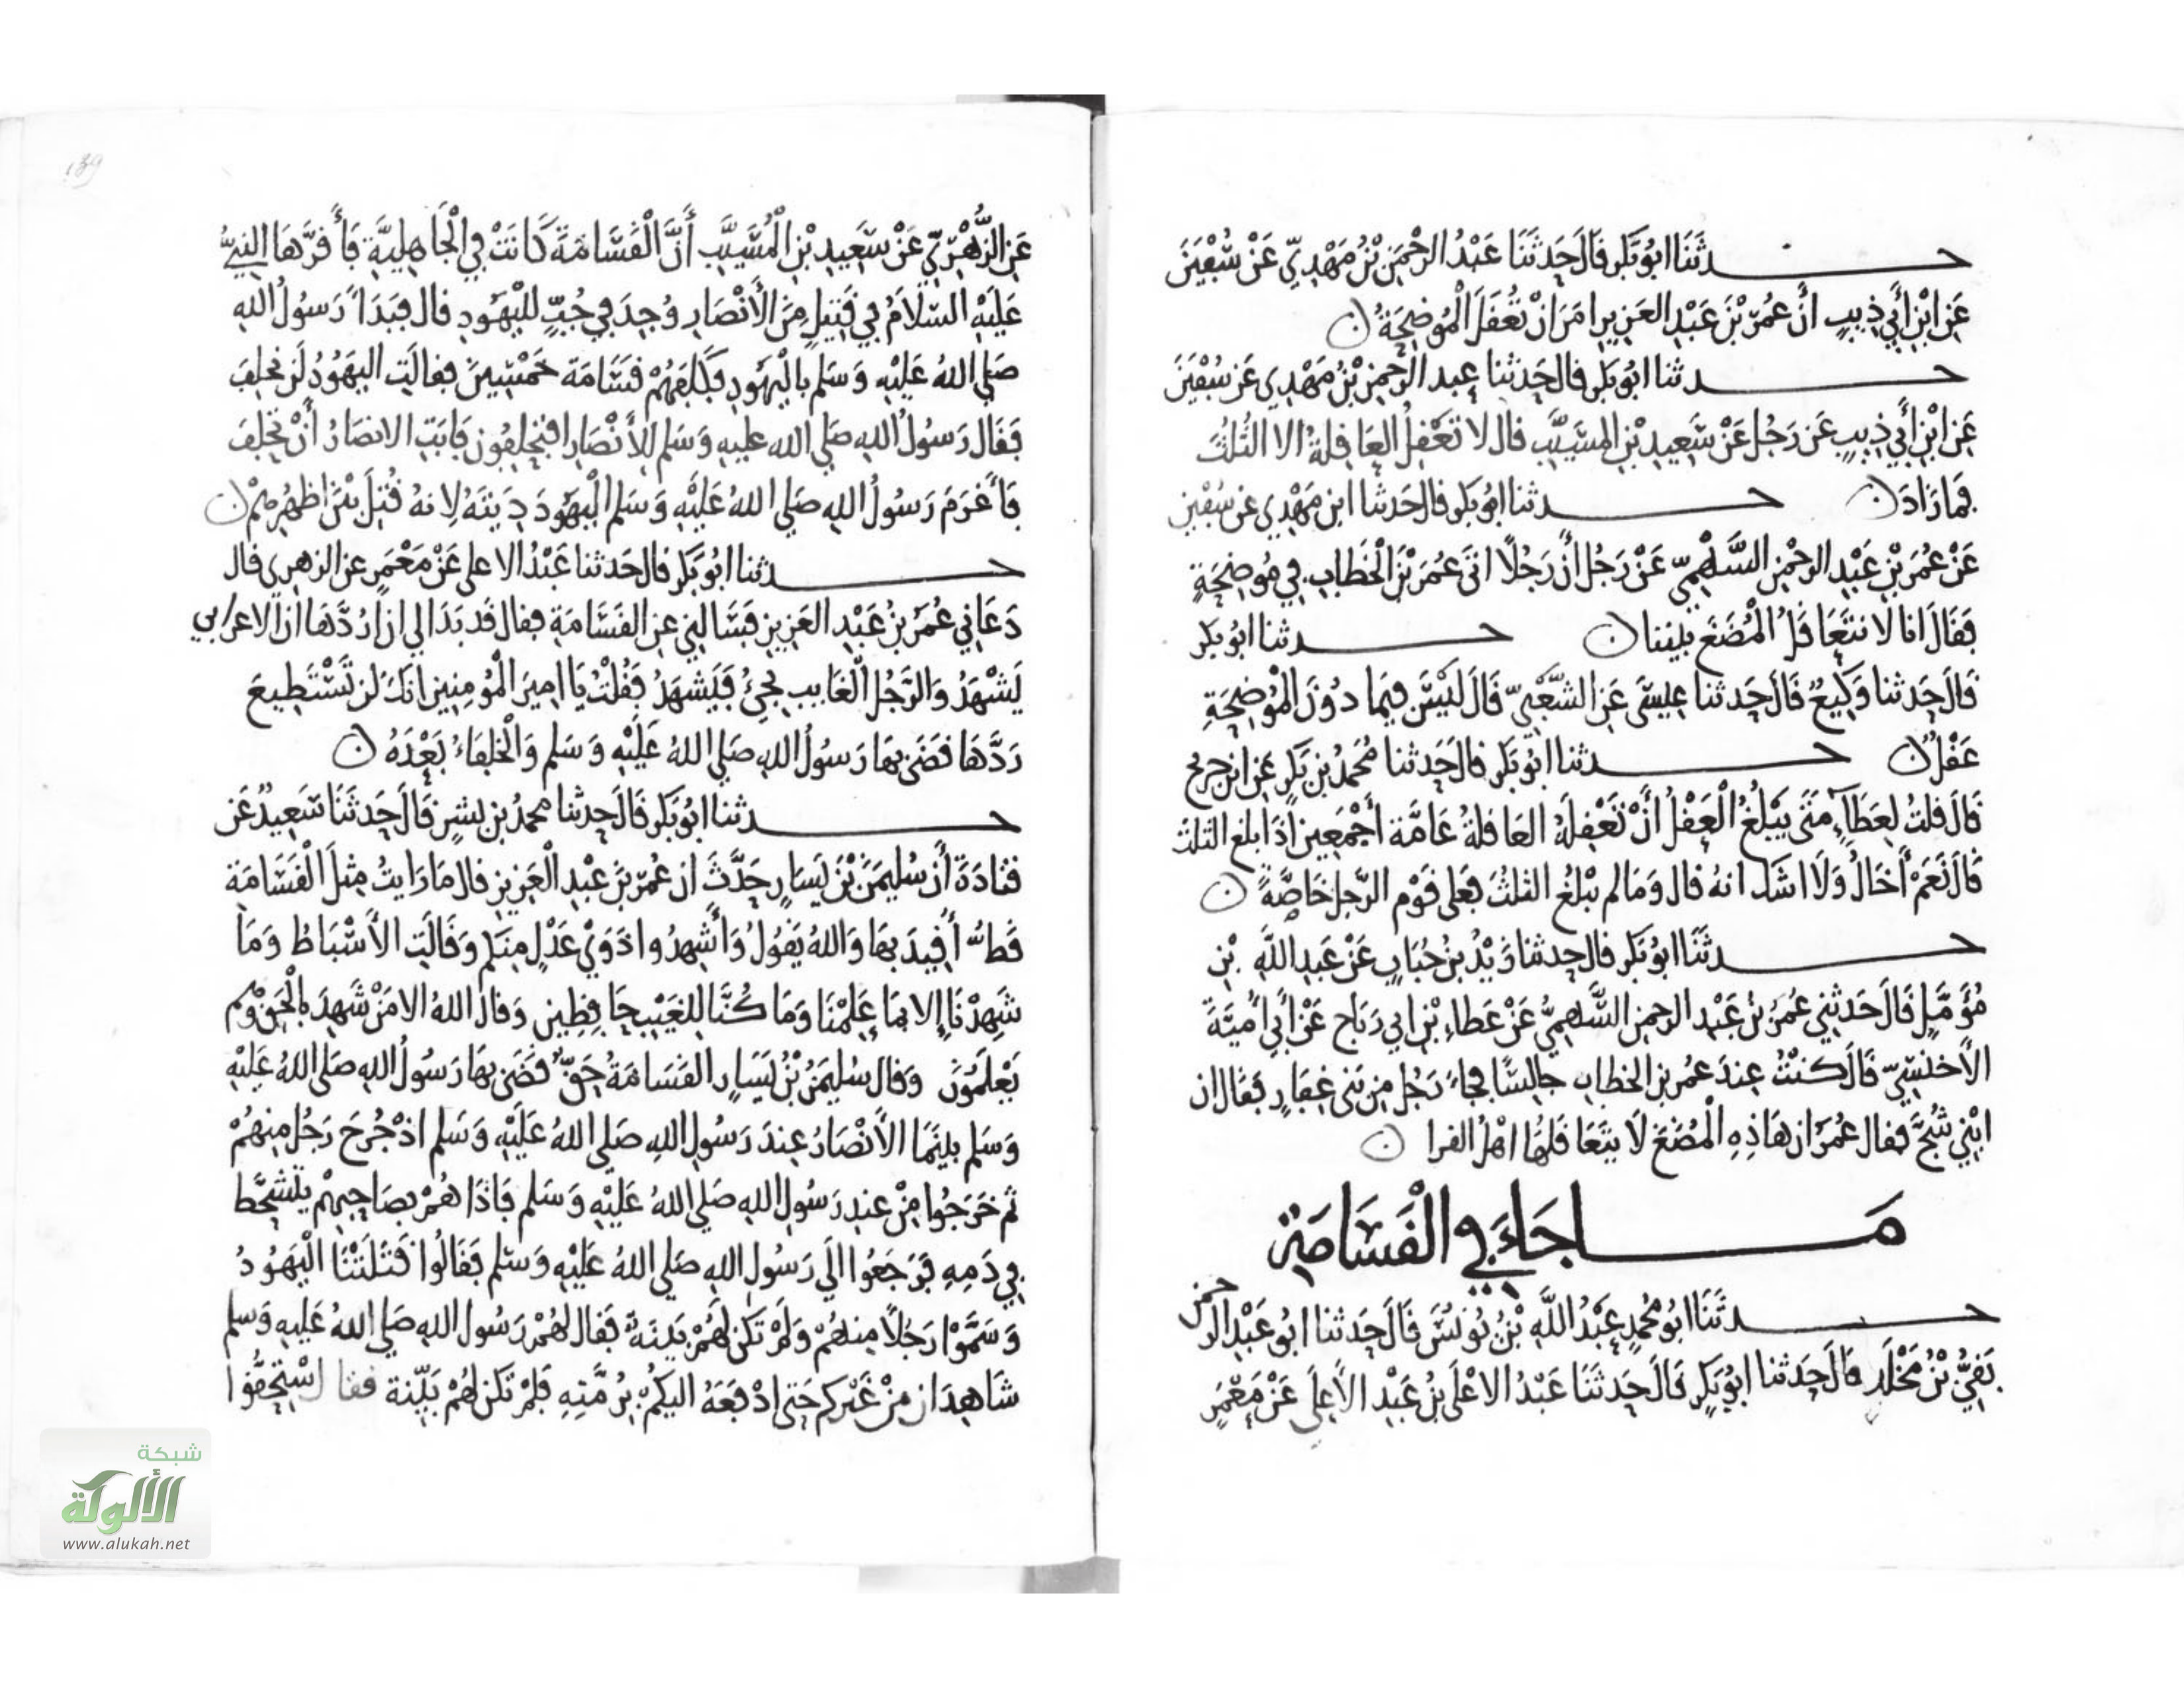 حدثنا ابو بكر قال حدثنا عبد الرحمن بن مهدي عن سفين
عن ابن أبي ذيب أن عمر بن عبد العزيز امر ان تعقل الموضحة
حدثنا ابو بكر قال حدثنا عبد الرحمن بن مهدي عن سفين
عن ابن أبي ذيب عن رجل عن سعيد بن المسيب قال لا تعقل العاقلة الا الثلث
فما زاد حدثنا ابو بكر قال حدثنا ابن مهدي عن سفين
عن عمر بن عبد الرحمن السهمي عن رجل أن رجلا اتى عمر بن الخطاب في موضحة
فقال انا لا نتعاقل المضغ بيننا حدثنا ابو بكر
قال حدثنا وكيع قال حدثنا عيسى عن الشعبي قال ليس فيما دون الموضحة
عقل حدثنا ابو بكر قال حدثنا محمد بن بكر عن ابن جريج
قال قلت لعطاء متى يبلغ العقل أن تعقله العاقلة عامة أجمعين اذا بلغ الثلث
قال نعم أخال ولا اشك انه قال وما لم يبلغ الثلث فعلى قوم الرجل خاصة
حدثنا ابو بكر قال حدثنا زيد بن حباب عن عبد الله بن
مؤمل قال حدثني عمر بن عبد الرحمن السهمي عن عطاء بن ابي رباح عن أبي أمية
الأخنسي قال كنت عند عمر بن الخطاب جالسا فجاء رجل من بني غفار فقال ان
ابني شج فقال عمر ان هاذه المضغ لا يتعاقلها اهل القرا
ما جاء في القسامة
حدثنا ابو محمد عبد الله بن يونس قال حدثنا ابو عبد الرحمن
بقي بن مخلد قال حدثنا ابو بكر قال حدثنا عبد الاعلى بن عبد الأعلى عن معمر
139
عن الزهري عن سعيد بن المسيب أن القسامة كانت في الجاهلية فأقرها النبي
عليه السلام في قتيل من الأنصار وجد في جب لليهود قال فبدأ رسول الله
صلى الله عليه وسلم باليهود فكلفهم قسامة خمسين فقالت اليهود لن نحلف
فقال رسول الله صلى الله عليه وسلم للأنصار افتحلفون فابت الانصار أن تحلف
فأغرم رسول الله صلى الله عليه وسلم اليهود ديته لانه قتل بين اظهرهم
حدثنا ابو بكر قال حدثنا عبد الاعلى عن معمر عن الزهري قال
دعاني عمر بن عبد العزيز فسالني عن القسامة فقال قد بدا لي ان أردها ان الاعرابي
يشهد والرجل الغايب يجيء فيشهد فقلت يا امير المؤمنين انك لن تستطيع
ردها قضى بها رسول الله صلى الله عليه وسلم والخلفاء بعده
حدثنا ابو بكر قال حدثنا محمد بن بشر قال حدثنا سعيد عن
قتادة أن سليمن بن يسار حدث ان عمر بن عبد العزيز قال ما رايت مثل القسامة
قط أقيد بها والله يقول وأشهدوا ذوي عدل منكم وقالت الأسباط وما
شهدنا إلا بما علمنا وما كنا للغيب حافظين وقال الله الا من شهد بالحق وهم
يعلمون وقال سليمن بن يسار القسامة حق قضى بها رسول الله صلى الله عليه
وسلم بينما الأنصار عند رسول الله صلى الله عليه وسلم اذ خرج رجل منهم
ثم خرجوا من عند رسول الله صلى الله عليه وسلم فاذا هم بصاحبهم يتشحط
في دمه فرجعوا الى رسول الله صلى الله عليه وسلم فقالوا قتلتنا اليهود
وسموا رجلا منهم ولم تكن لهم بينة فقال لهم رسول الله صلى الله عليه وسلم
شاهدان من غيركم حتى ادفعه اليكم برمته فلم تكن لهم بينة فقال استحقوا
شبكة
الألوكة
www.alukah.net